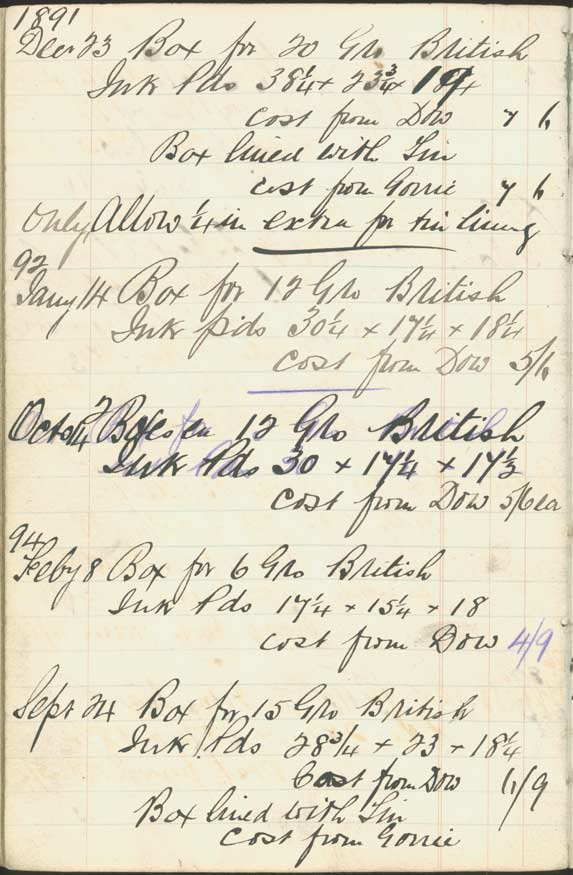 1891
Decr 23 Box for 20 Gro British
Ink Pds 38¼ × 23¾ × 19
cost from Dow 7 6
Box lined with Tin
cost from Gorrie 7 6
Only Allow ¼ in extra for tin lining
92
Jany 14 Box for 12 Gro British
Ink pds 30¼ × 17¼ × 18¼
Cost from Dow 5/6
Octo 14 2 Boxes for 12 Gro British
Ink Pds 30 × 17¼ × 17½
cost from Dow 5/6 ea
94
Feby 8 Box for 6 Gro British
Ink Pds 17¼ × 15¼ × 18
cost from Dow 4/9
Sept 24 Box for 15 Gro British
Ink Pds 28¾ × 23 × 18¼
Cost from Dow 6/9
Box lined with Tin
cost from Gorrie